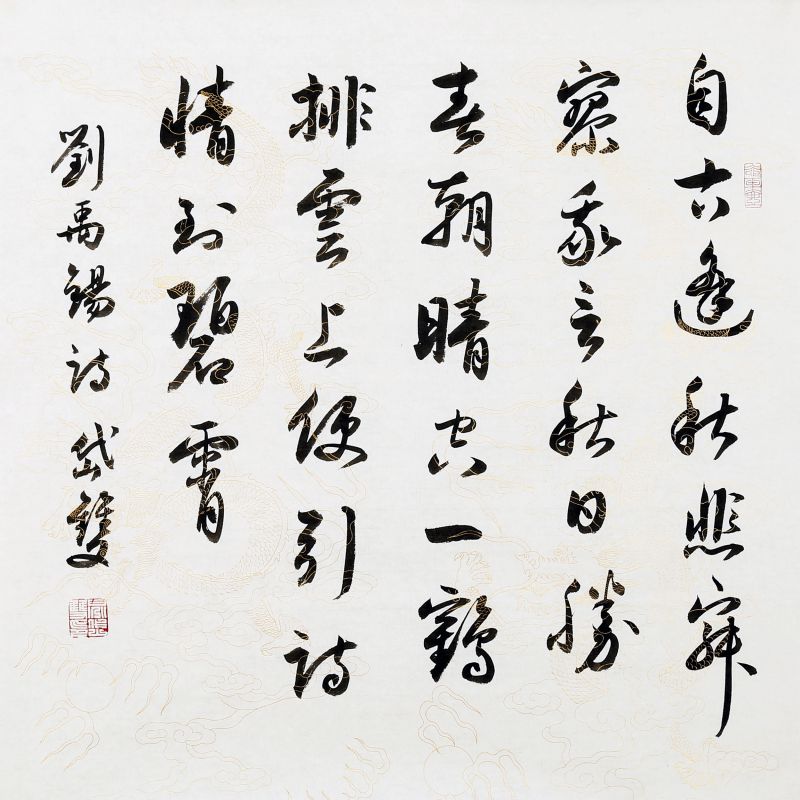 自古逢秋悲寂
寥我言秋日勝
春朝晴空一鶴
排雲上便引詩
情到碧霄
劉禹錫詩 岱雙